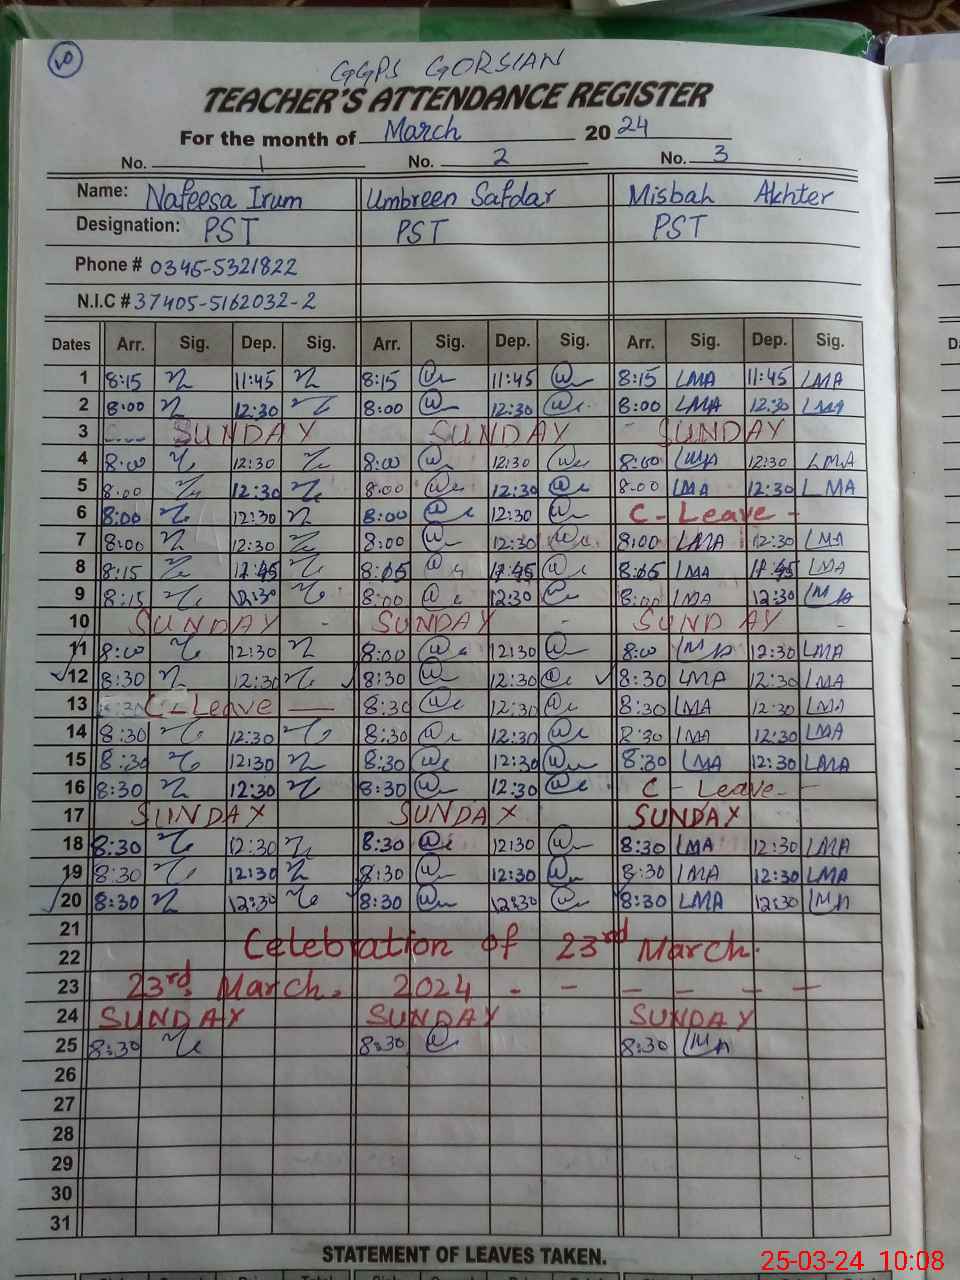 10
GGPS GORSIAN
TEACHER'S ATTENDANCE REGISTER
For the month of March 2024
No. 1 No. 2 No. 3
Name: Nafeesa Irum Umbreen Safdar Misbah Akhter
Designation: PST PST PST
Phone # 0345-5321822
N.I.C # 37405-5162032-2
Dates Arr. Sig. Dep. Sig. Arr. Sig. Dep. Sig. Arr. Sig. Dep. Sig.
1 8:15 11:45 8:15 11:45 8:15 LMA 11:45 LMA
2 8:00 12:30 8:00 12:30 8:00 LMA 12:30 LMA
3 SUNDAY SUNDAY SUNDAY
4 8:00 12:30 8:00 12:30 8:00 LMA 12:30 LMA
5 8:00 12:30 8:00 12:30 8:00 LMA 12:30 LMA
6 8:00 12:30 8:00 12:30 C - Leave -
7 8:00 12:30 8:00 12:30 8:00 LMA 12:30 LMA
8 8:15 LMA LMA
9 8:15 12:30 8:00 12:30 8:00 LMA 12:30 LMA
10 SUNDAY - SUNDAY - SUNDAY -
11 8:00 12:30 8:00 12:30 8:00 LMA 12:30 LMA
12 8:30 12:30 8:30 12:30 8:30 LMA 12:30 LMA
13 C - Leave — 8:30 12:30 8:30 LMA 12:30 LMA
14 8:30 12:30 8:30 12:30 8:30 LMA 12:30 LMA
15 8:30 12:30 8:30 12:30 8:30 LMA 12:30 LMA
16 8:30 12:30 8:30 12:30 C - Leave - -
17 SUNDAY SUNDAY SUNDAY
18 8:30 12:30 8:30 12:30 8:30 LMA 12:30 LMA
19 8:30 12:30 8:30 12:30 8:30 LMA 12:30 LMA
20 8:30 12:30 8:30 12:30 8:30 LMA 12:30 LMA
21
22 Celebration of 23rd March.
23 23rd March. 2024 - - - - - -
24 SUNDAY SUNDAY SUNDAY
25 8:30 8:30 8:30 LMA
26
27
28
29
30
31
STATEMENT OF LEAVES TAKEN.
25-03-24 10:08